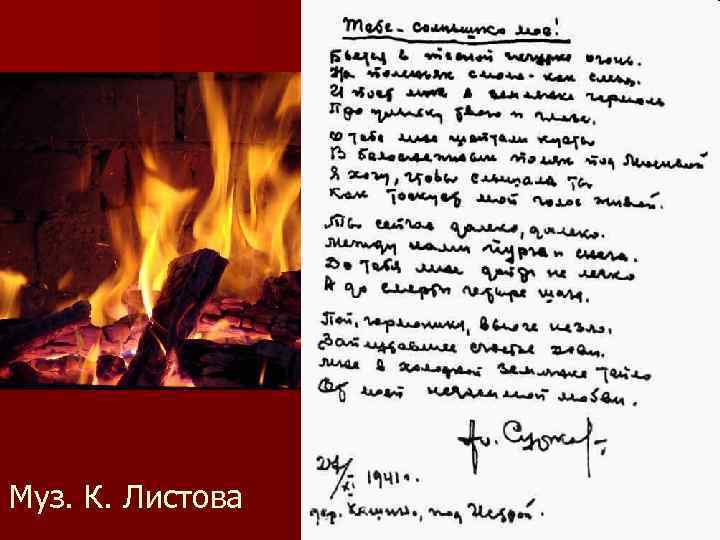 Тебе - солнышко мое!
Бьется в тесной печурке огонь.
На поленьях смола - как слеза.
И поет мне в землянке гармонь
Про улыбку твою и глаза.
О тебе мне шептали кусты
В белоснежных полях под Москвой
Я хочу, чтобы слышала ты
Как тоскует мой голос живой.
Ты сейчас далеко, далеко.
Между нами пурга и снега.
До тебя мне дойти не легко
А до смерти четыре шага.
Пой, гармоника, вьюге на зло.
Заплутавшее счастье зови.
Мне в холодной землянке тепло
От моей негасимой любви.
Ал. Сурков
27/XI 1941 г.
дер. Кашино, под Истрой.
Муз. К. Листова